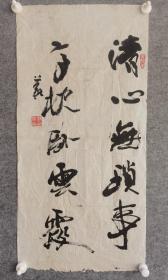 清心無瑣事
高枕卧雲霞